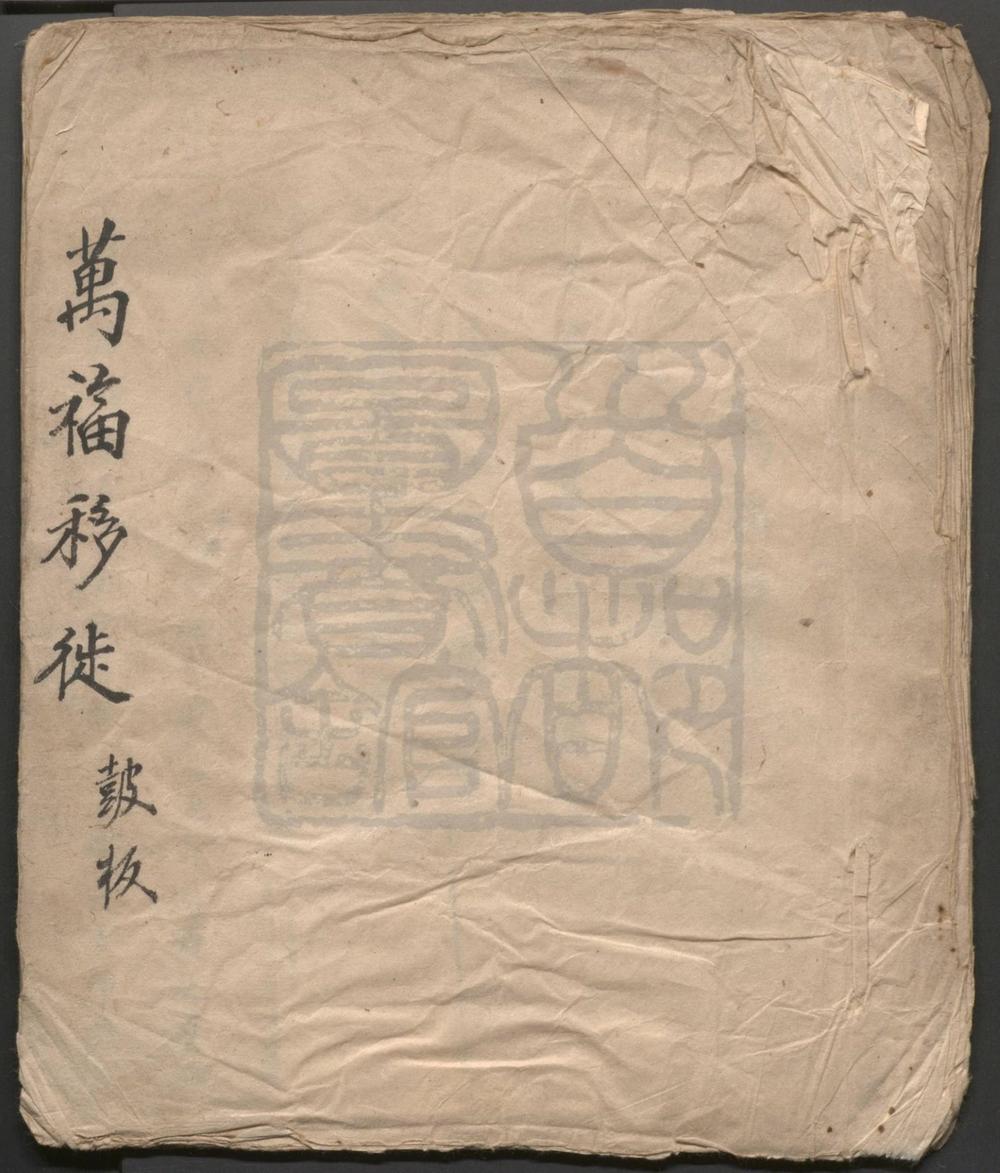 萬福移徙
鼓板